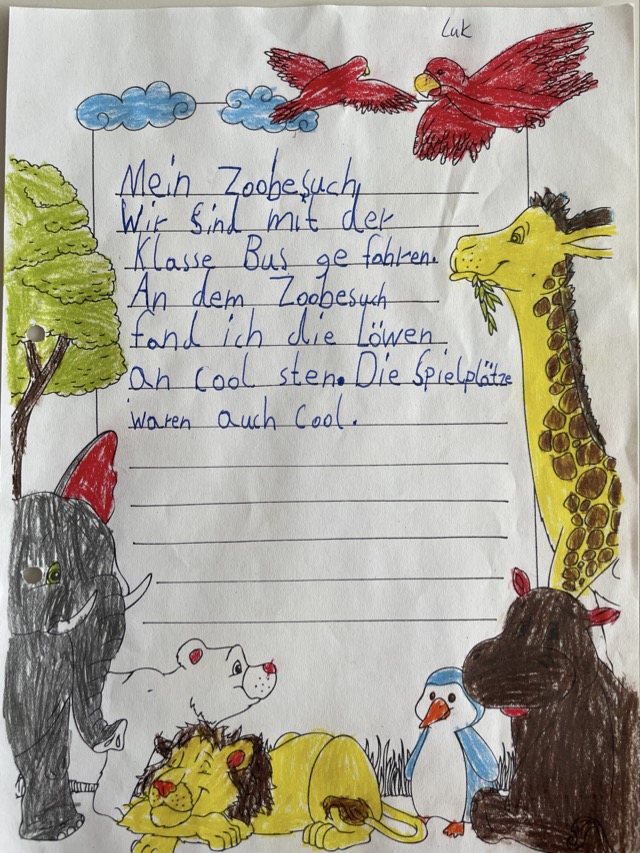 Luk
Mein Zoobesuch
Wir sind mit der
Klasse Bus ge fahren.
An dem Zoobesuch
fand ich die Löwen
an cool sten. Die Spielplätze
waren auch cool.